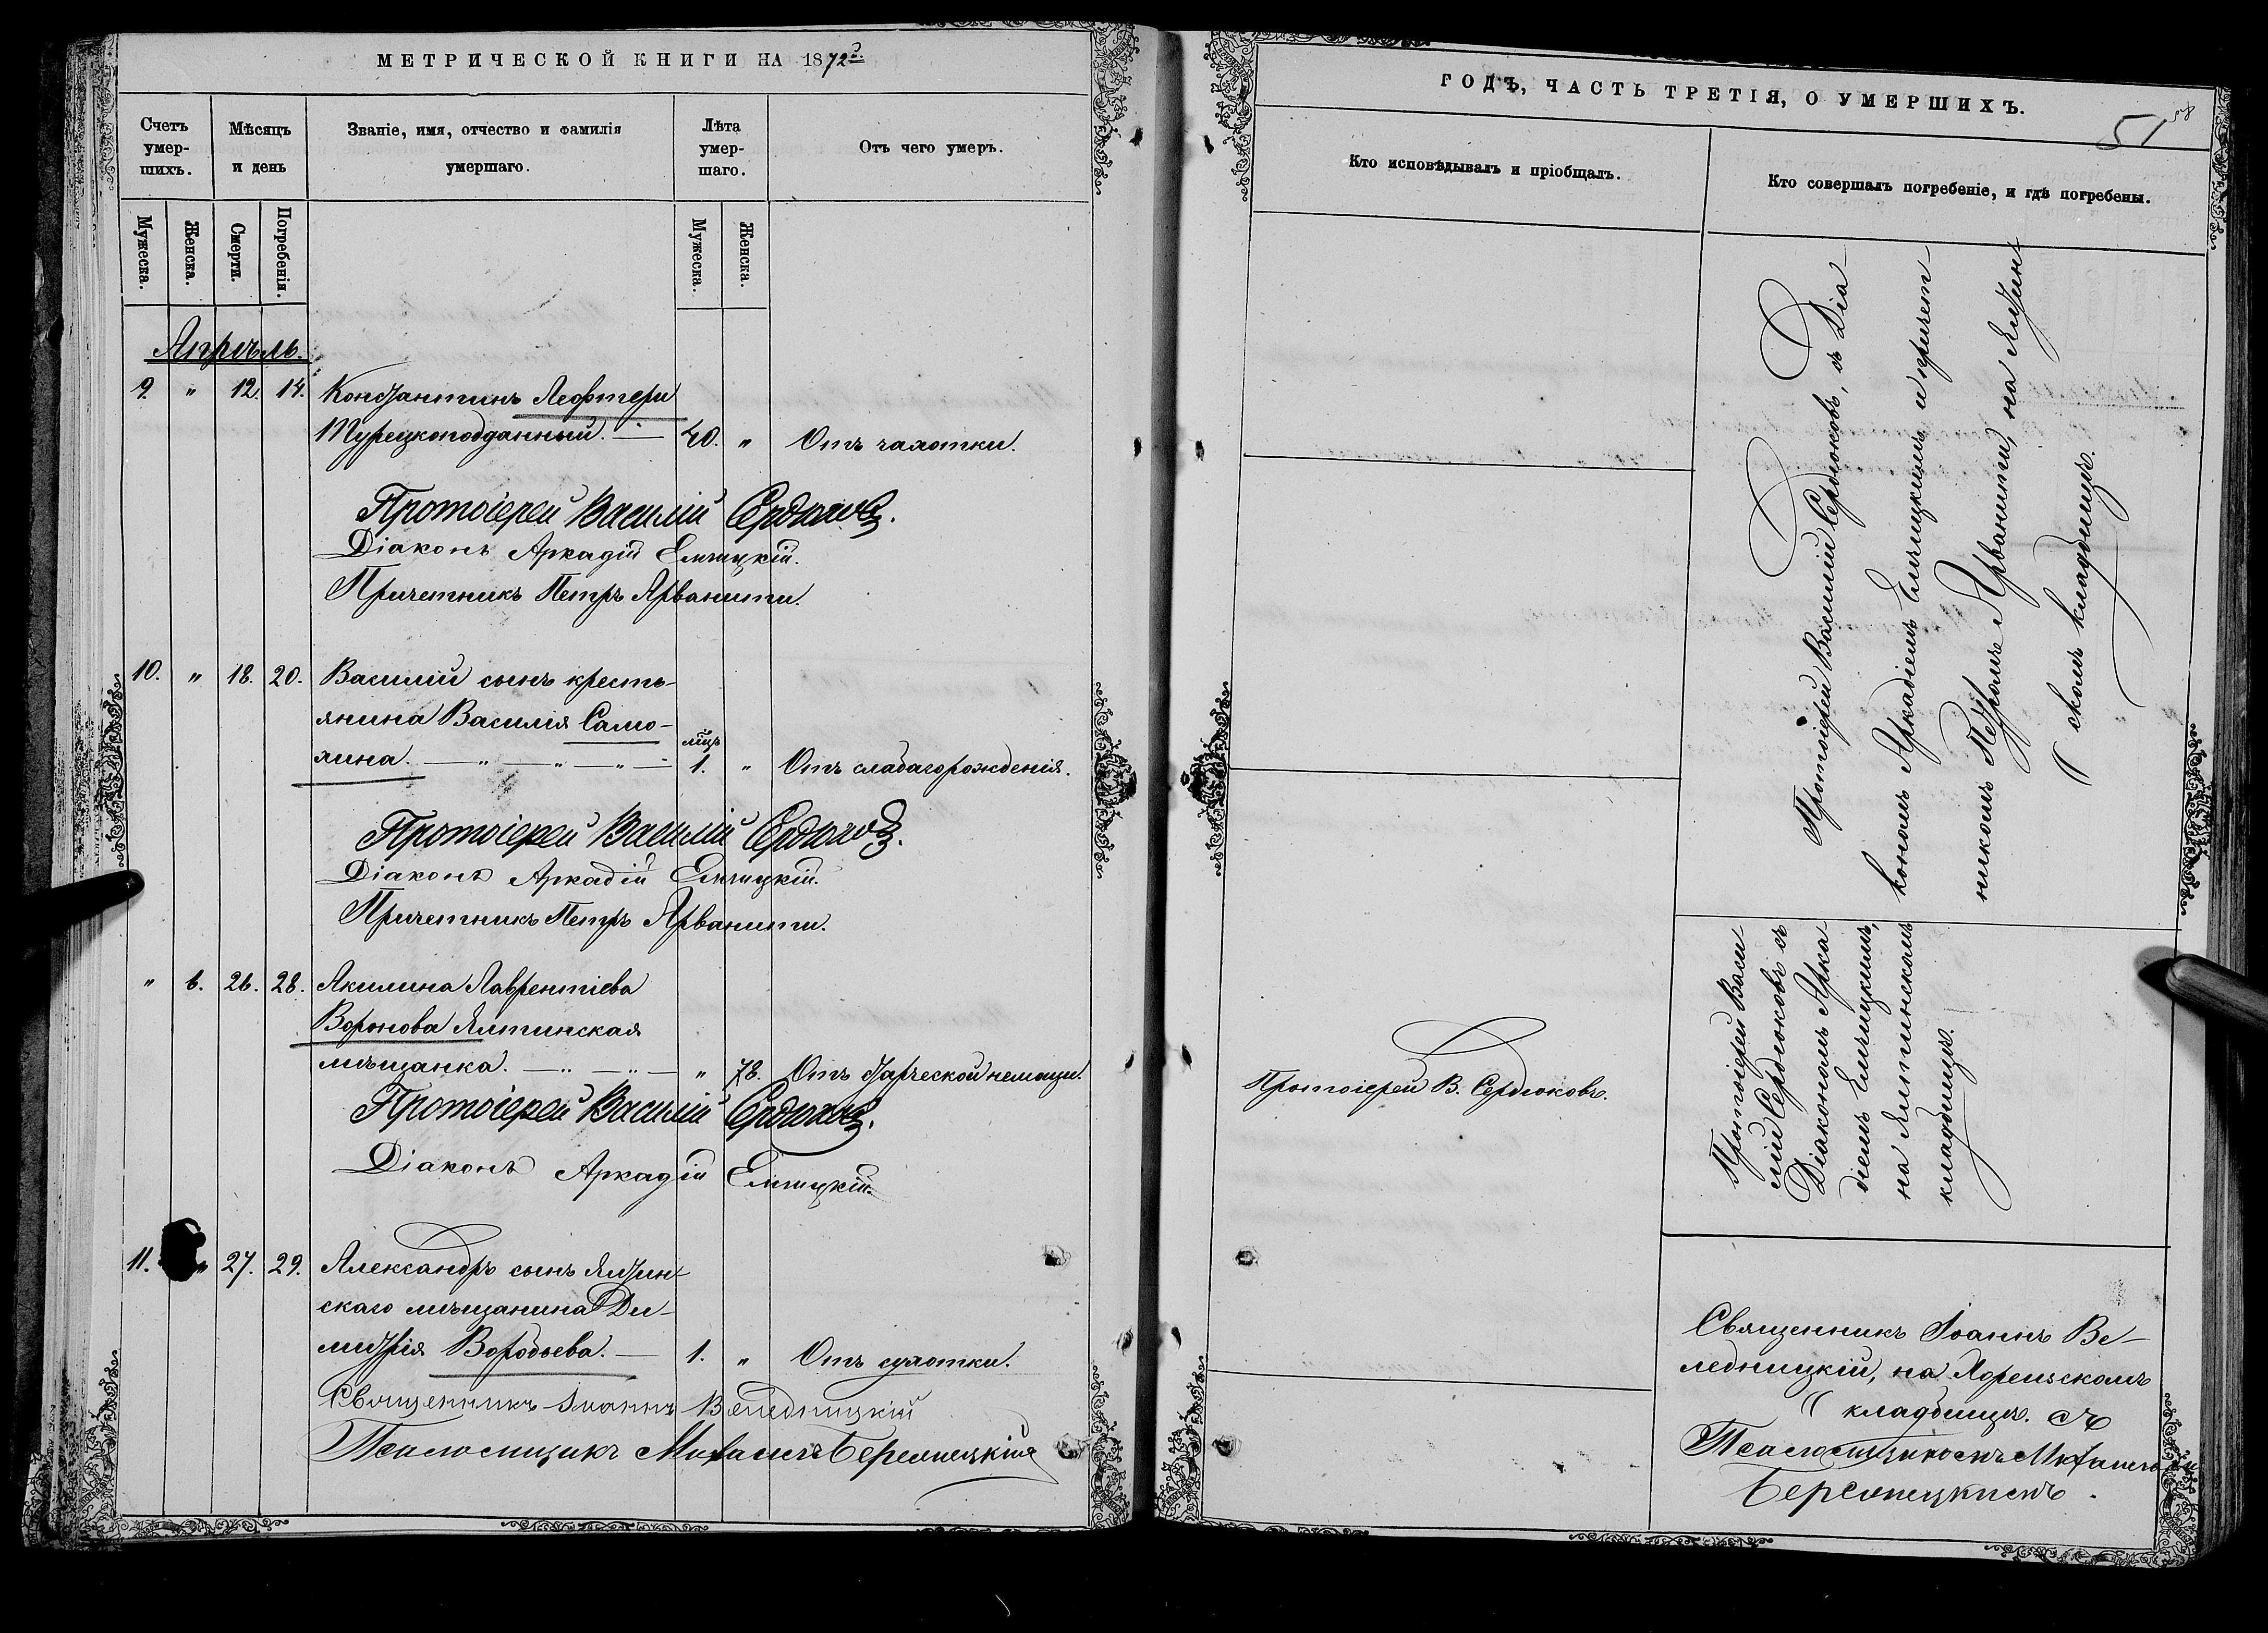 МЕТРИЧЕСКОЙ КНИГИ НА 1872
Счетъ умер-шихъ.
Мѣсяцъ и день
Званіе, имя, отчество и фамилія умершаго.
Лѣта умер-шаго.
Отъ чего умеръ.
Мужеска.
Женска.
Смерти.
Погребенія.
Мужеска.
Женска.
Апрѣль.
9. " 12. 14. Константинъ Лефтери
Турецкоподданный. — 40. " Отъ чахотки.
Протоіерей Василій Сердюковъ.
Діаконъ Аркадій Елчицкій.
Причетникъ Петръ Арванити.
10. " 18. 20. Василій сынъ кресть-
янина Василія Само-
хина. — " — " — " — мцъ 1. " Отъ слабагорожденія.
Протоіерей Василій Сердюковъ.
Діаконъ Аркадій Елчицкій.
Причетникъ Петръ Арванити.
" 6. 26. 28. Акилина Лаврентіева
Воронова Ялтинская
мѣщанка. — " — " — " 78. Отъ старческой немощи.
Протоіерей Василій Сердюковъ.
Діаконъ Аркадій Елчицкій.
11. " 27. 29. Александръ сынъ Ялтин-
скаго мѣщанина Ди-
митрія Воробьева. — 1. " Отъ сухотки.
Священникъ Іоаннъ Веледницкій
Псаломщикъ Михаилъ
ГОДЪ, ЧАСТЬ ТРЕТІЯ, О УМЕРШИХЪ.
51
58
Кто исповѣдывалъ и пріобщалъ.
Кто совершалъ погребеніе, и гдѣ погребены.
Протоіерей Василій Сердюковъ, съ Діа-
кономъ Аркадіемъ Елчицкимъ и причет-
никомъ Петромъ Арванити, на Ялтин-
скомъ кладбищѣ.
Протоіерей В. Сердюковъ.
Протоіерей Васи
лій Сердюковъ съ
Діакономъ Арка
діемъ Елчицкимъ,
на Ялтинскомъ
кладбищѣ.
Священникъ Іоаннъ Ве-
ледницкій, на
кладбищѣ. съ
Псаломщикомъ Михаиломъ